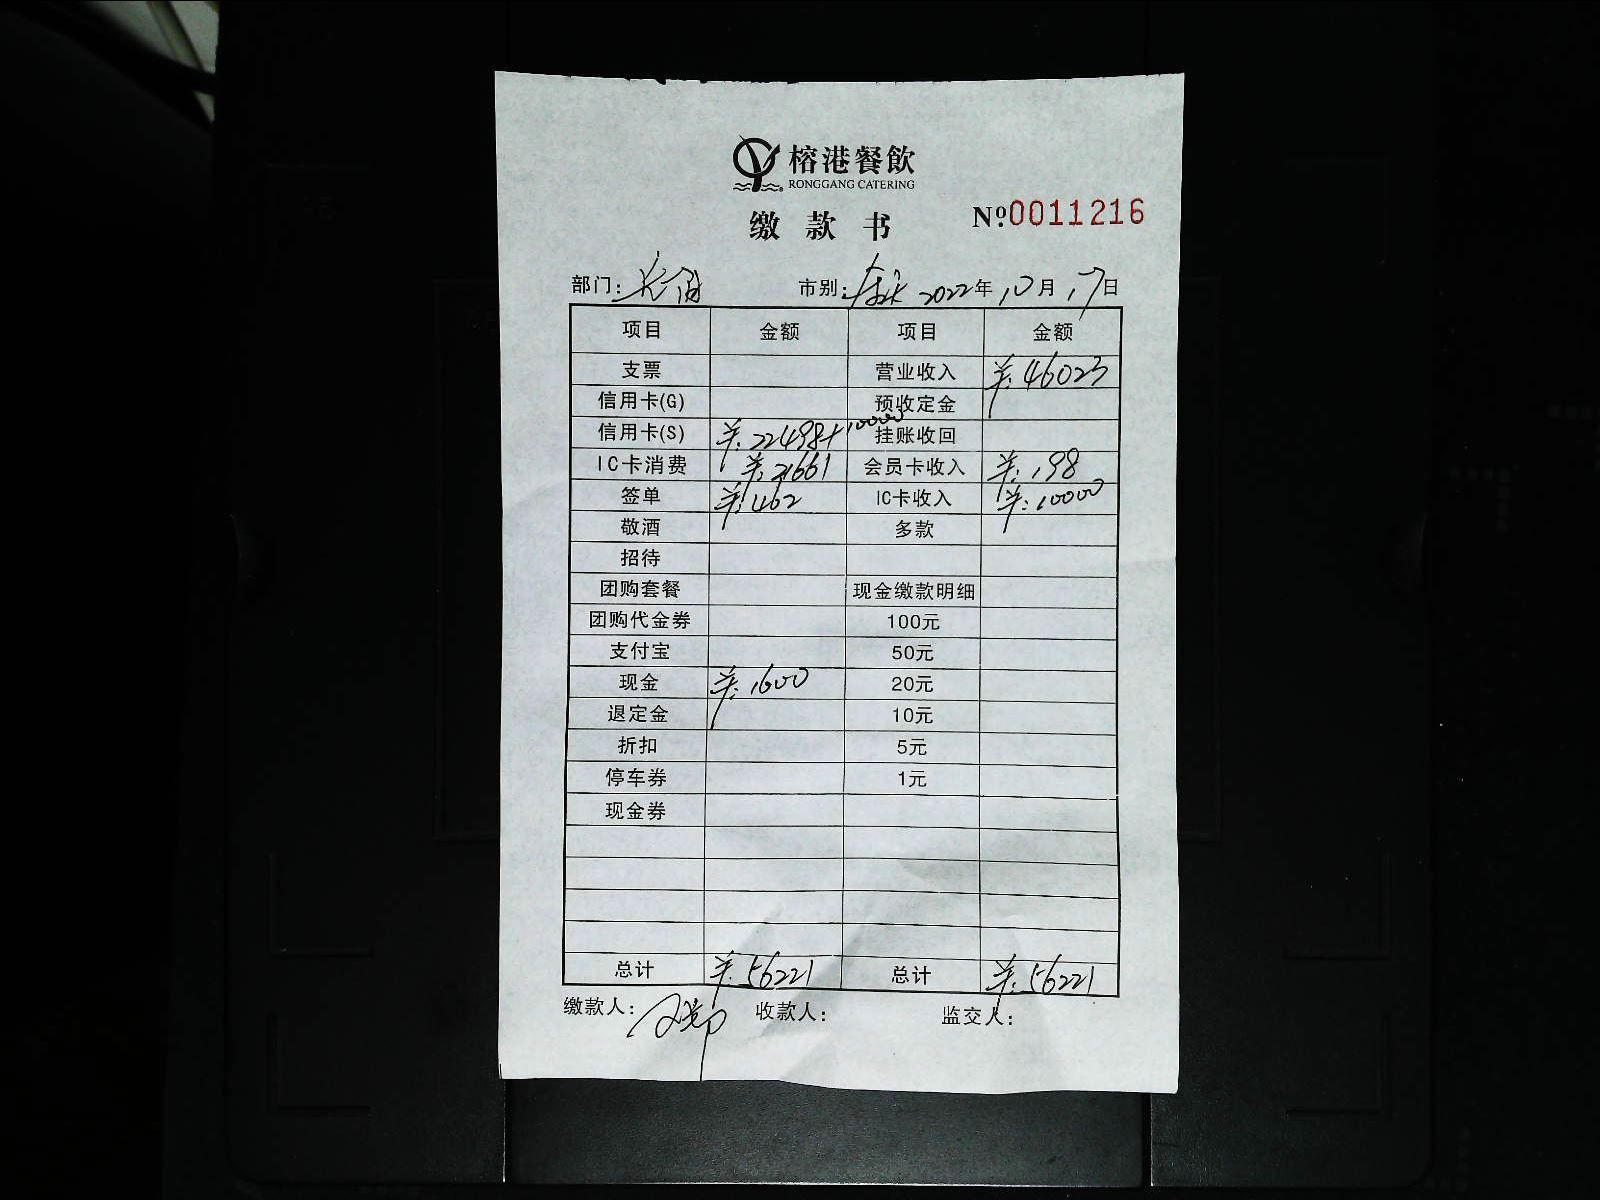 榕港餐飲
RONGGANG CATERING
缴款书 Nº.0011216
部门: 市别: 2022年10月17日
项目 金额 项目 金额
支票 营业收入 ¥:46023
信用卡(G) 预收定金
信用卡(S) ¥:22498+10000 挂账收回
IC卡消费 ¥:21661 会员卡收入 ¥:198
签单 ¥:462 IC卡收入 ¥:10000
敬酒 多款
招待
团购套餐 现金缴款明细
团购代金券 100元
支付宝 50元
现金 ¥:1600 20元
退定金 10元
折扣 5元
停车券 1元
现金券
总计 ¥:56221 总计 ¥:56221
缴款人: 收款人: 监交人: